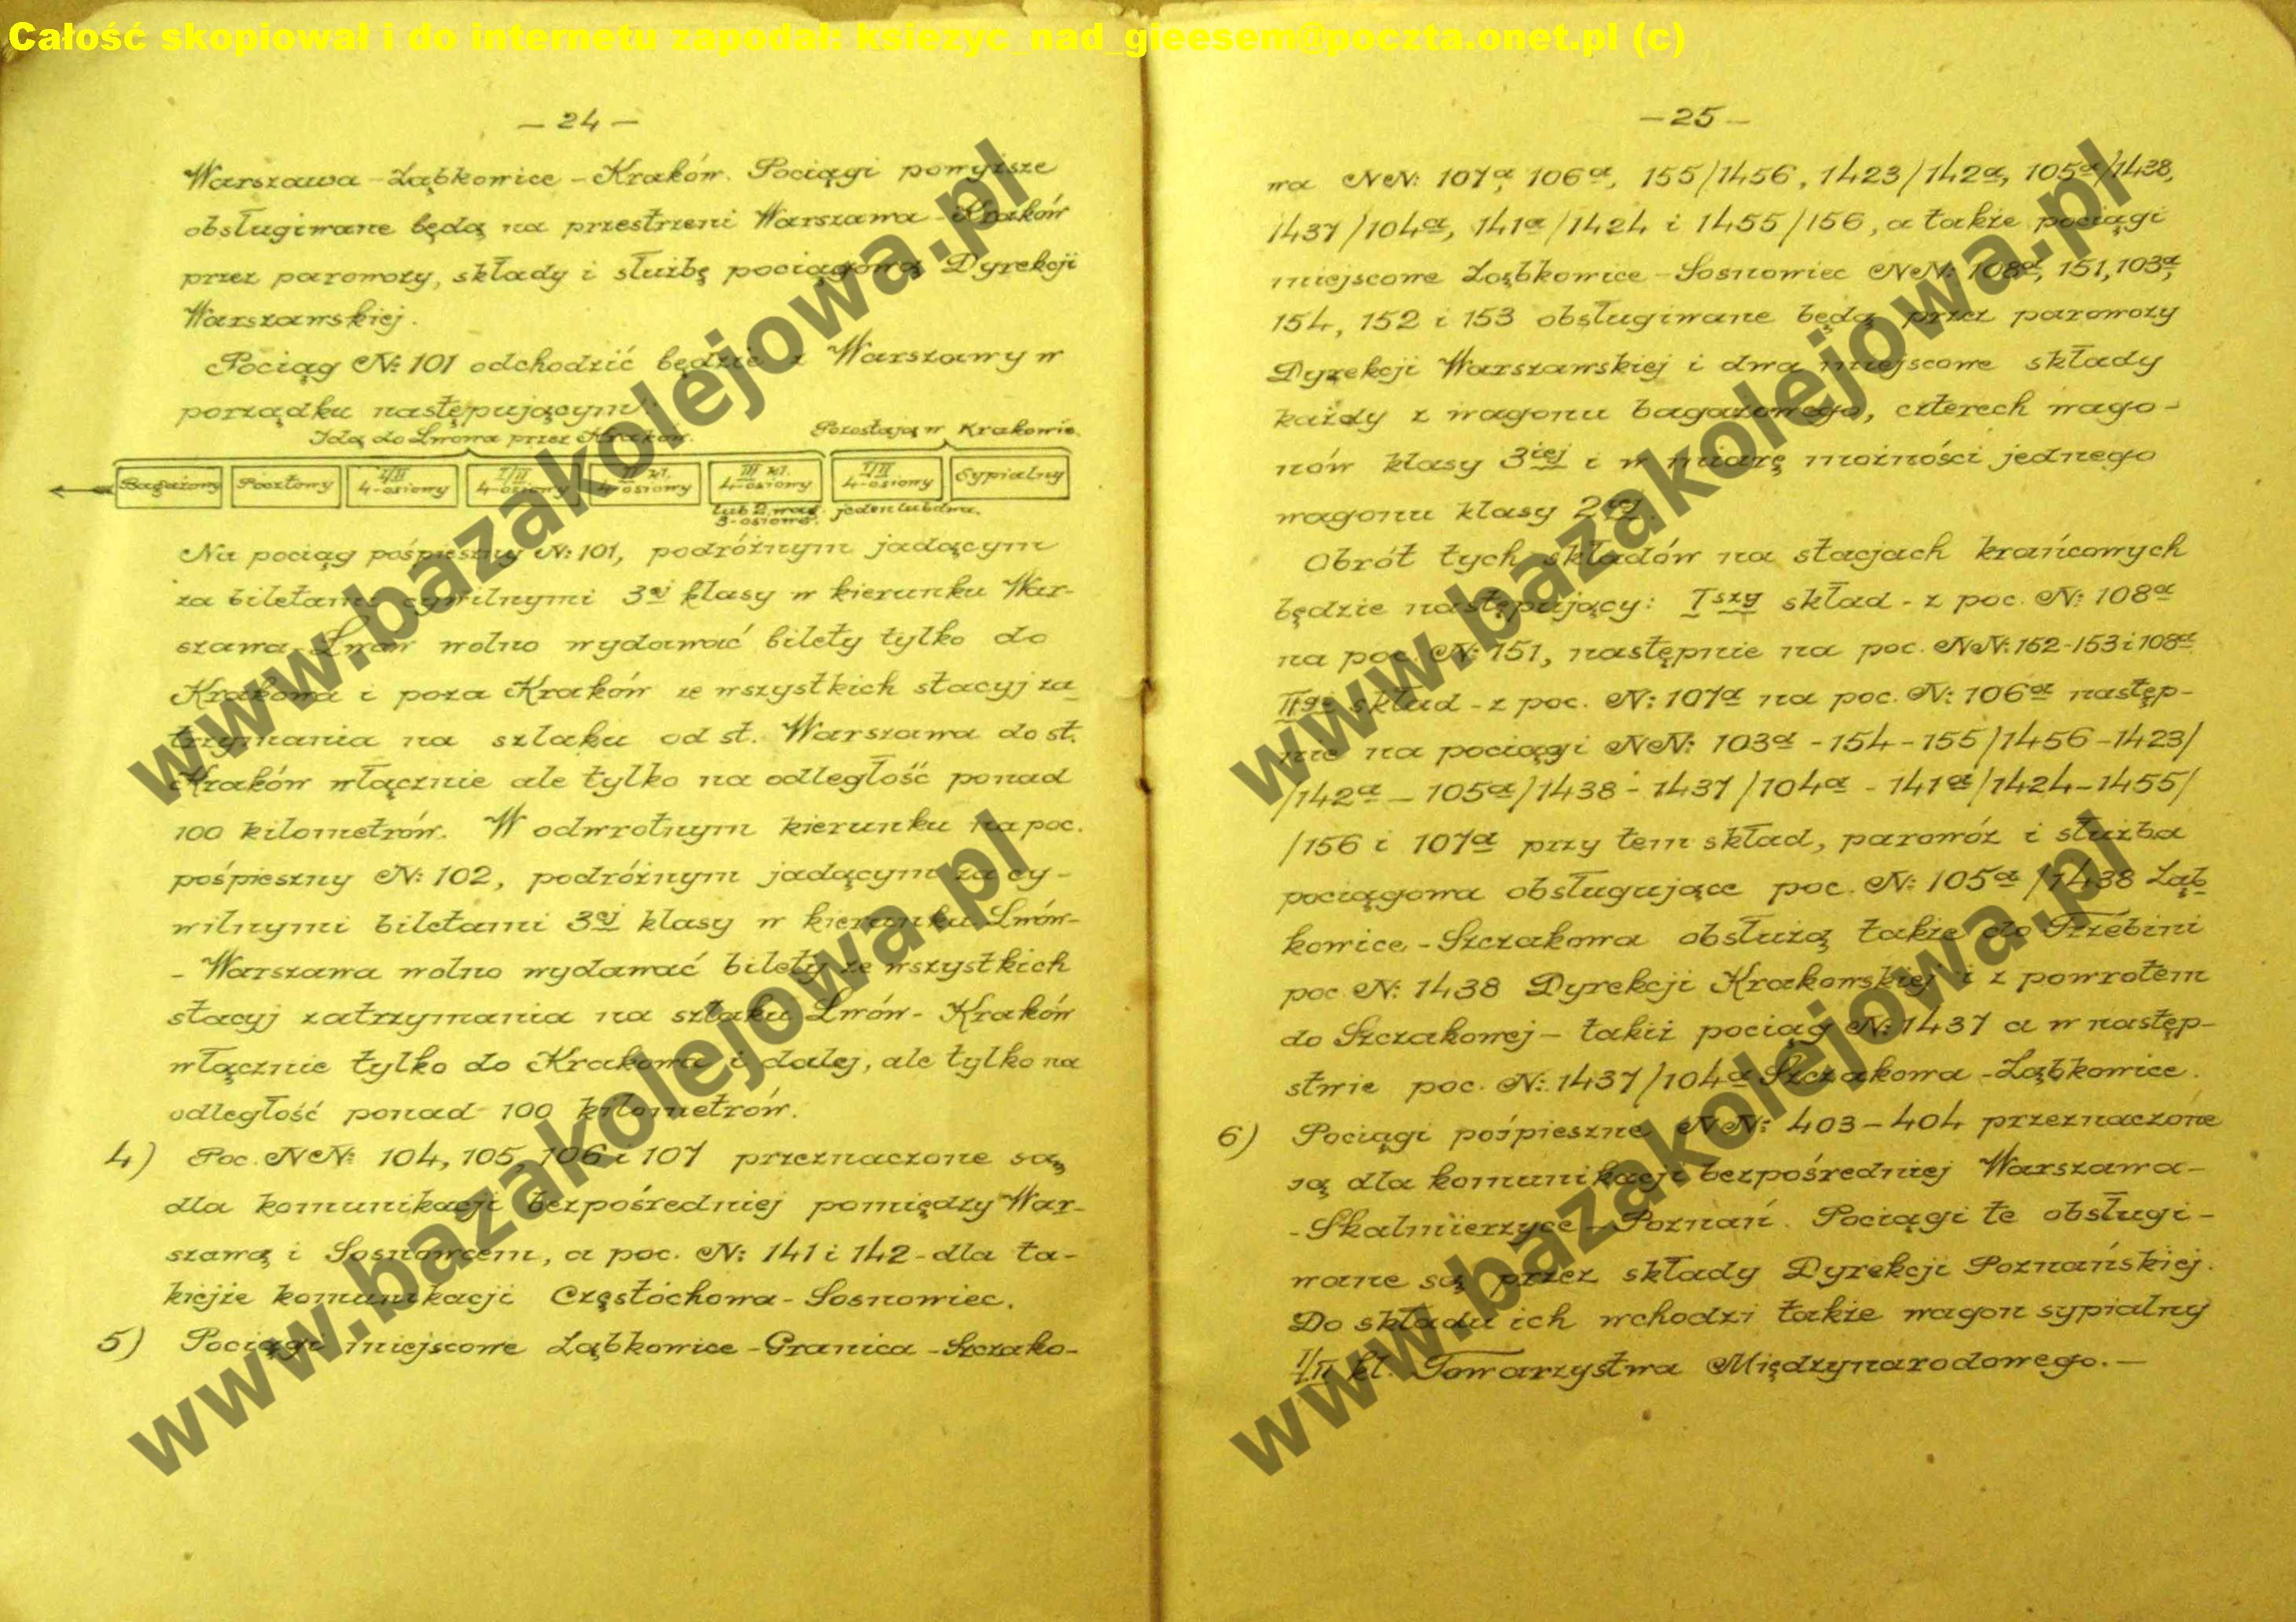 Całość skopiował i do internetu zapodał: ksiezyc_nad_gieesem@poczta.onet.pl (c)
— 24 —
Warszawa – Ząbkowice – Kraków. Pociągi powyższe
obsługiwane będą na przestrzeni Warszawa – Kraków
przez parowozy, składy i służbę pociągową Dyrekcji
Warszawskiej.
Pociąg №: 101 odchodzić będzie z Warszawy w
porządku następującym:
Idą do Lwowa przez Kraków. Pozostają w Krakowie.
Bagażowy Pocztowy I/II 4-osiowy I/II 4-osiowy III kl. 4-osiowy III kl. 4-osiowy I/II 4-osiowy Sypialny
lub 2 wag. 3-osiowe. jeden lub dwa.
Na pociąg pośpieszny №: 101, podróżnym jadącym
za biletami cywilnymi 3ej klasy w kierunku War-
szawa – Lwów wolno wydawać bilety tylko do
Krakowa i poza Kraków ze wszystkich stacyj za-
trzymania na szlaku od st. Warszawa do st.
Kraków włącznie ale tylko na odległość ponad
100 kilometrów. W odwrotnym kierunku na poc.
pośpieszny №: 102, podróżnym jadącym za cy-
wilnymi biletami 3ej klasy w kierunku Lwów-
- Warszawa wolno wydawać bilety ze wszystkich
stacyj zatrzymania na szlaku Lwów - Kraków
włącznie tylko do Krakowa i dalej, ale tylko na
odległość ponad 100 kilometrów.
4) Poc. №№: 104, 105, 106 i 107 przeznaczone są
dla komunikacji bezpośredniej pomiędzy War-
szawą i Sosnowcem, a poc. №: 141 i 142 - dla ta-
kiejże komunikacji Częstochowa - Sosnowiec.
5) Pociągi miejscowe Ząbkowice – Granica – Szczako-
— 25 —
wa №№: 107a, 106a, 155/1456, 1423/142a, 105a/1438,
1437/104a, 141a/1424 i 1455/156, a także pociągi
miejscowe Ząbkowice – Sosnowiec №№: 108a, 151, 103a,
154, 152 i 153 obsługiwane będą przez parowozy
Dyrekcji Warszawskiej i dwa miejscowe składy
każdy z wagonu bagażowego, czterech wago-
nów klasy 3iej i w miarę możności jednego
wagonu klasy 2iej.
Obrót tych składów na stacjach krańcowych
będzie następujący: Iszy skład - z poc. №: 108a
na poc. №: 151, następnie na poc. №№: 152-153 i 108a
IIgi skład - z poc. №: 107a na poc. №: 106a następ-
nie na pociągi №№: 103a - 154 - 155/1456 - 1423/
/142a – 105a/1438 - 1437/104a - 141a/1424 - 1455/
/156 i 107a przy tem skład, parowóz i służba
pociągowa obsługujące poc. №: 105a/1438 Ząb-
kowice - Szczakowa obsłużą także do Trzebini
poc. №: 1438 Dyrekcji Krakowskiej i z powrotem
do Szczakowej – takiż pociąg №: 1437 a w następ-
stwie poc. №: 1437/104a Szczakowa - Ząbkowice.
6) Pociągi pośpieszne №№: 403 – 404 przeznaczone
są dla komunikacji bezpośredniej Warszawa –
- Skalmierzyce – Poznań. Pociągi te obsługi-
wane są przez składy Dyrekcji Poznańskiej.
Do składu ich wchodzi także wagon sypialny
I/II kl. Towarzystwa Międzynarodowego. —
www.bazakolejowa.pl
www.bazakolejowa.pl
www.bazakolejowa.pl
www.bazakolejowa.pl